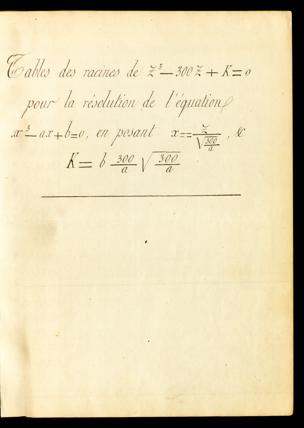 Tables des racines de z³ — 300z + K = 0
pour la résolution de l'équation
x³ — ax + b = 0, en posant x = z/√(300/a), &
K = b 300/a √(300/a)